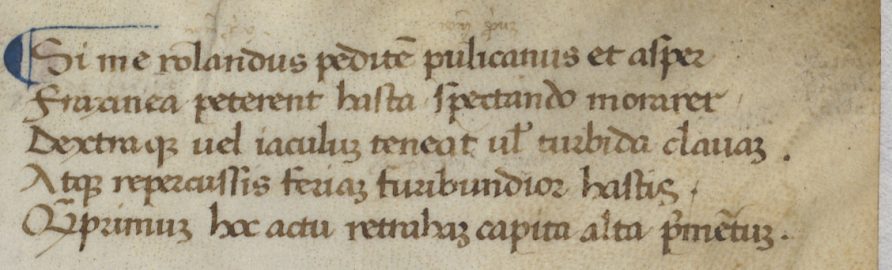 ¶ Si me rolandus peditē pulicanus et asper
Fraxinea peterent hasta spectando morarer
Dextraqꝫ uel iaculuꝫ teneat ul̄ turbida clauaꝫ .
Atqꝫ repercussis feriaꝫ furibundior hastis ,
Q̄primuꝫ hoc actu retrahaꝫ capita alta p̄mētuꝫ .